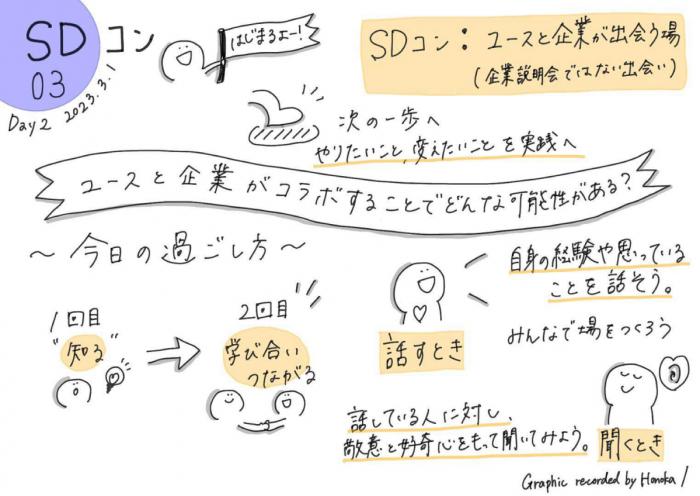 SDコン
03
Day2 2023.3.1
はじまるよー!
SDコン: ユースと企業が出会う場
(企業説明会ではない出会い)
次の一歩へ
やりたいこと、変えたいことを実践へ
ユースと企業がコラボすることでどんな可能性がある?
〜今日の過ごし方〜
1回目
"知る"
2回目
学び合い
つながる
話すとき
自身の経験や思っている
ことを話そう。
みんなで場をつくろう
話している人に対し、
敬意と好奇心をもって聞いてみよう。
聞くとき
Graphic recorded by Honoka